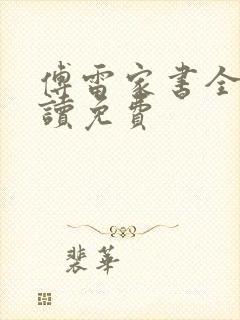 傅雷家書全
讀免費
裴華